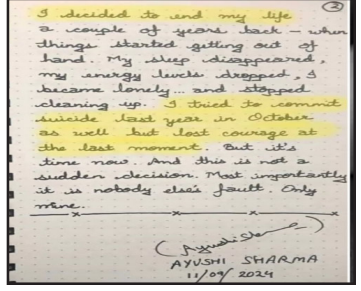 ②
I decided to end my life
a couple of years back – when
things started getting out of
hand. My sleep disappeared,
my energy levels dropped, I
became lonely... and stopped
cleaning up. I tried to commit
suicide last year in October
as well but lost courage at
the last moment. But it's
time now. And this is not a
sudden decision. Most importantly
it is nobody else's fault. Only
mine.
AYUSHI SHARMA
11/09/2024